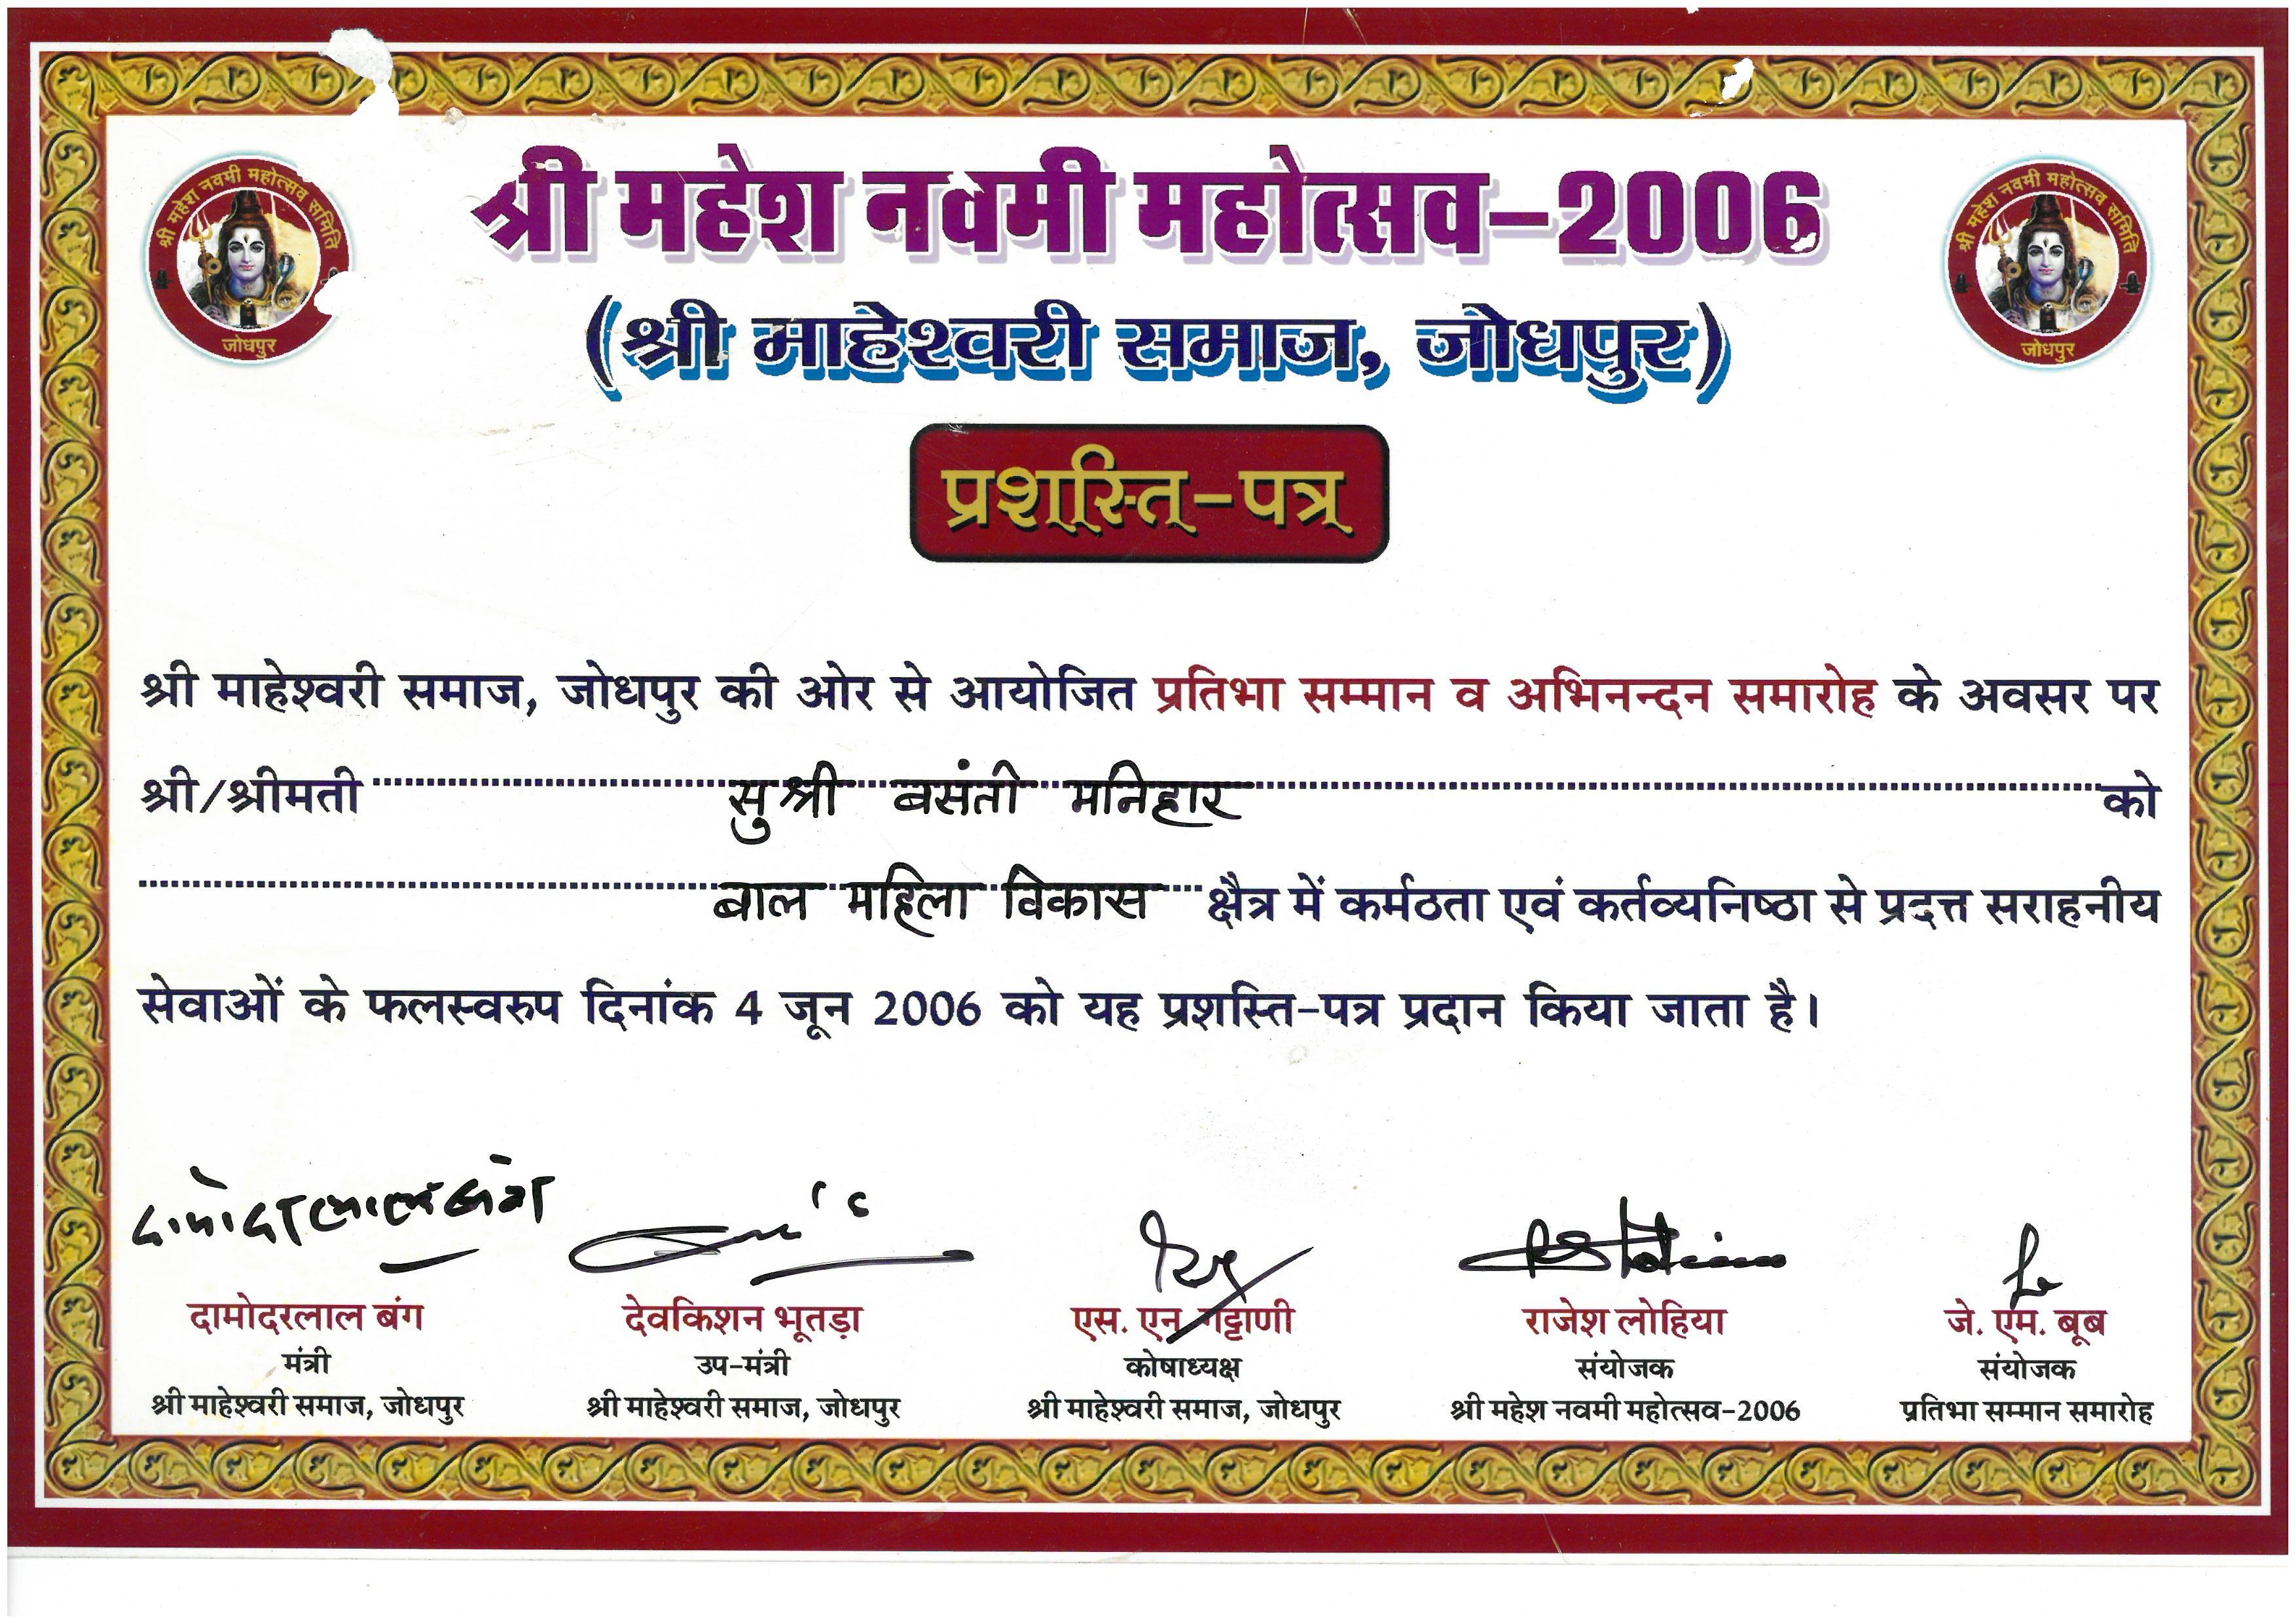 श्री महेश नवमी महोत्सव समिति
जोधपुर
श्री महेश नवमी महोत्सव-2006
श्री महेश नवमी महोत्सव समिति
जोधपुर
(श्री माहेश्वरी समाज, जोधपुर)
प्रशस्ति-पत्र
श्री माहेश्वरी समाज, जोधपुर की ओर से आयोजित प्रतिभा सम्मान व अभिनन्दन समारोह के अवसर पर
श्री/श्रीमती सुश्री बसंती मनिहार को
बाल महिला विकास क्षैत्र में कर्मठता एवं कर्तव्यनिष्ठा से प्रदत्त सराहनीय
सेवाओं के फलस्वरुप दिनांक 4 जून 2006 को यह प्रशस्ति-पत्र प्रदान किया जाता है।
दामोदरलाल बंग
दामोदरलाल बंग
मंत्री
श्री माहेश्वरी समाज, जोधपुर
देवकिशन भूतड़ा
उप-मंत्री
श्री माहेश्वरी समाज, जोधपुर
एस. एन. गट्टाणी
कोषाध्यक्ष
श्री माहेश्वरी समाज, जोधपुर
राजेश लोहिया
संयोजक
श्री महेश नवमी महोत्सव-2006
जे. एम. बूब
संयोजक
प्रतिभा सम्मान समारोह